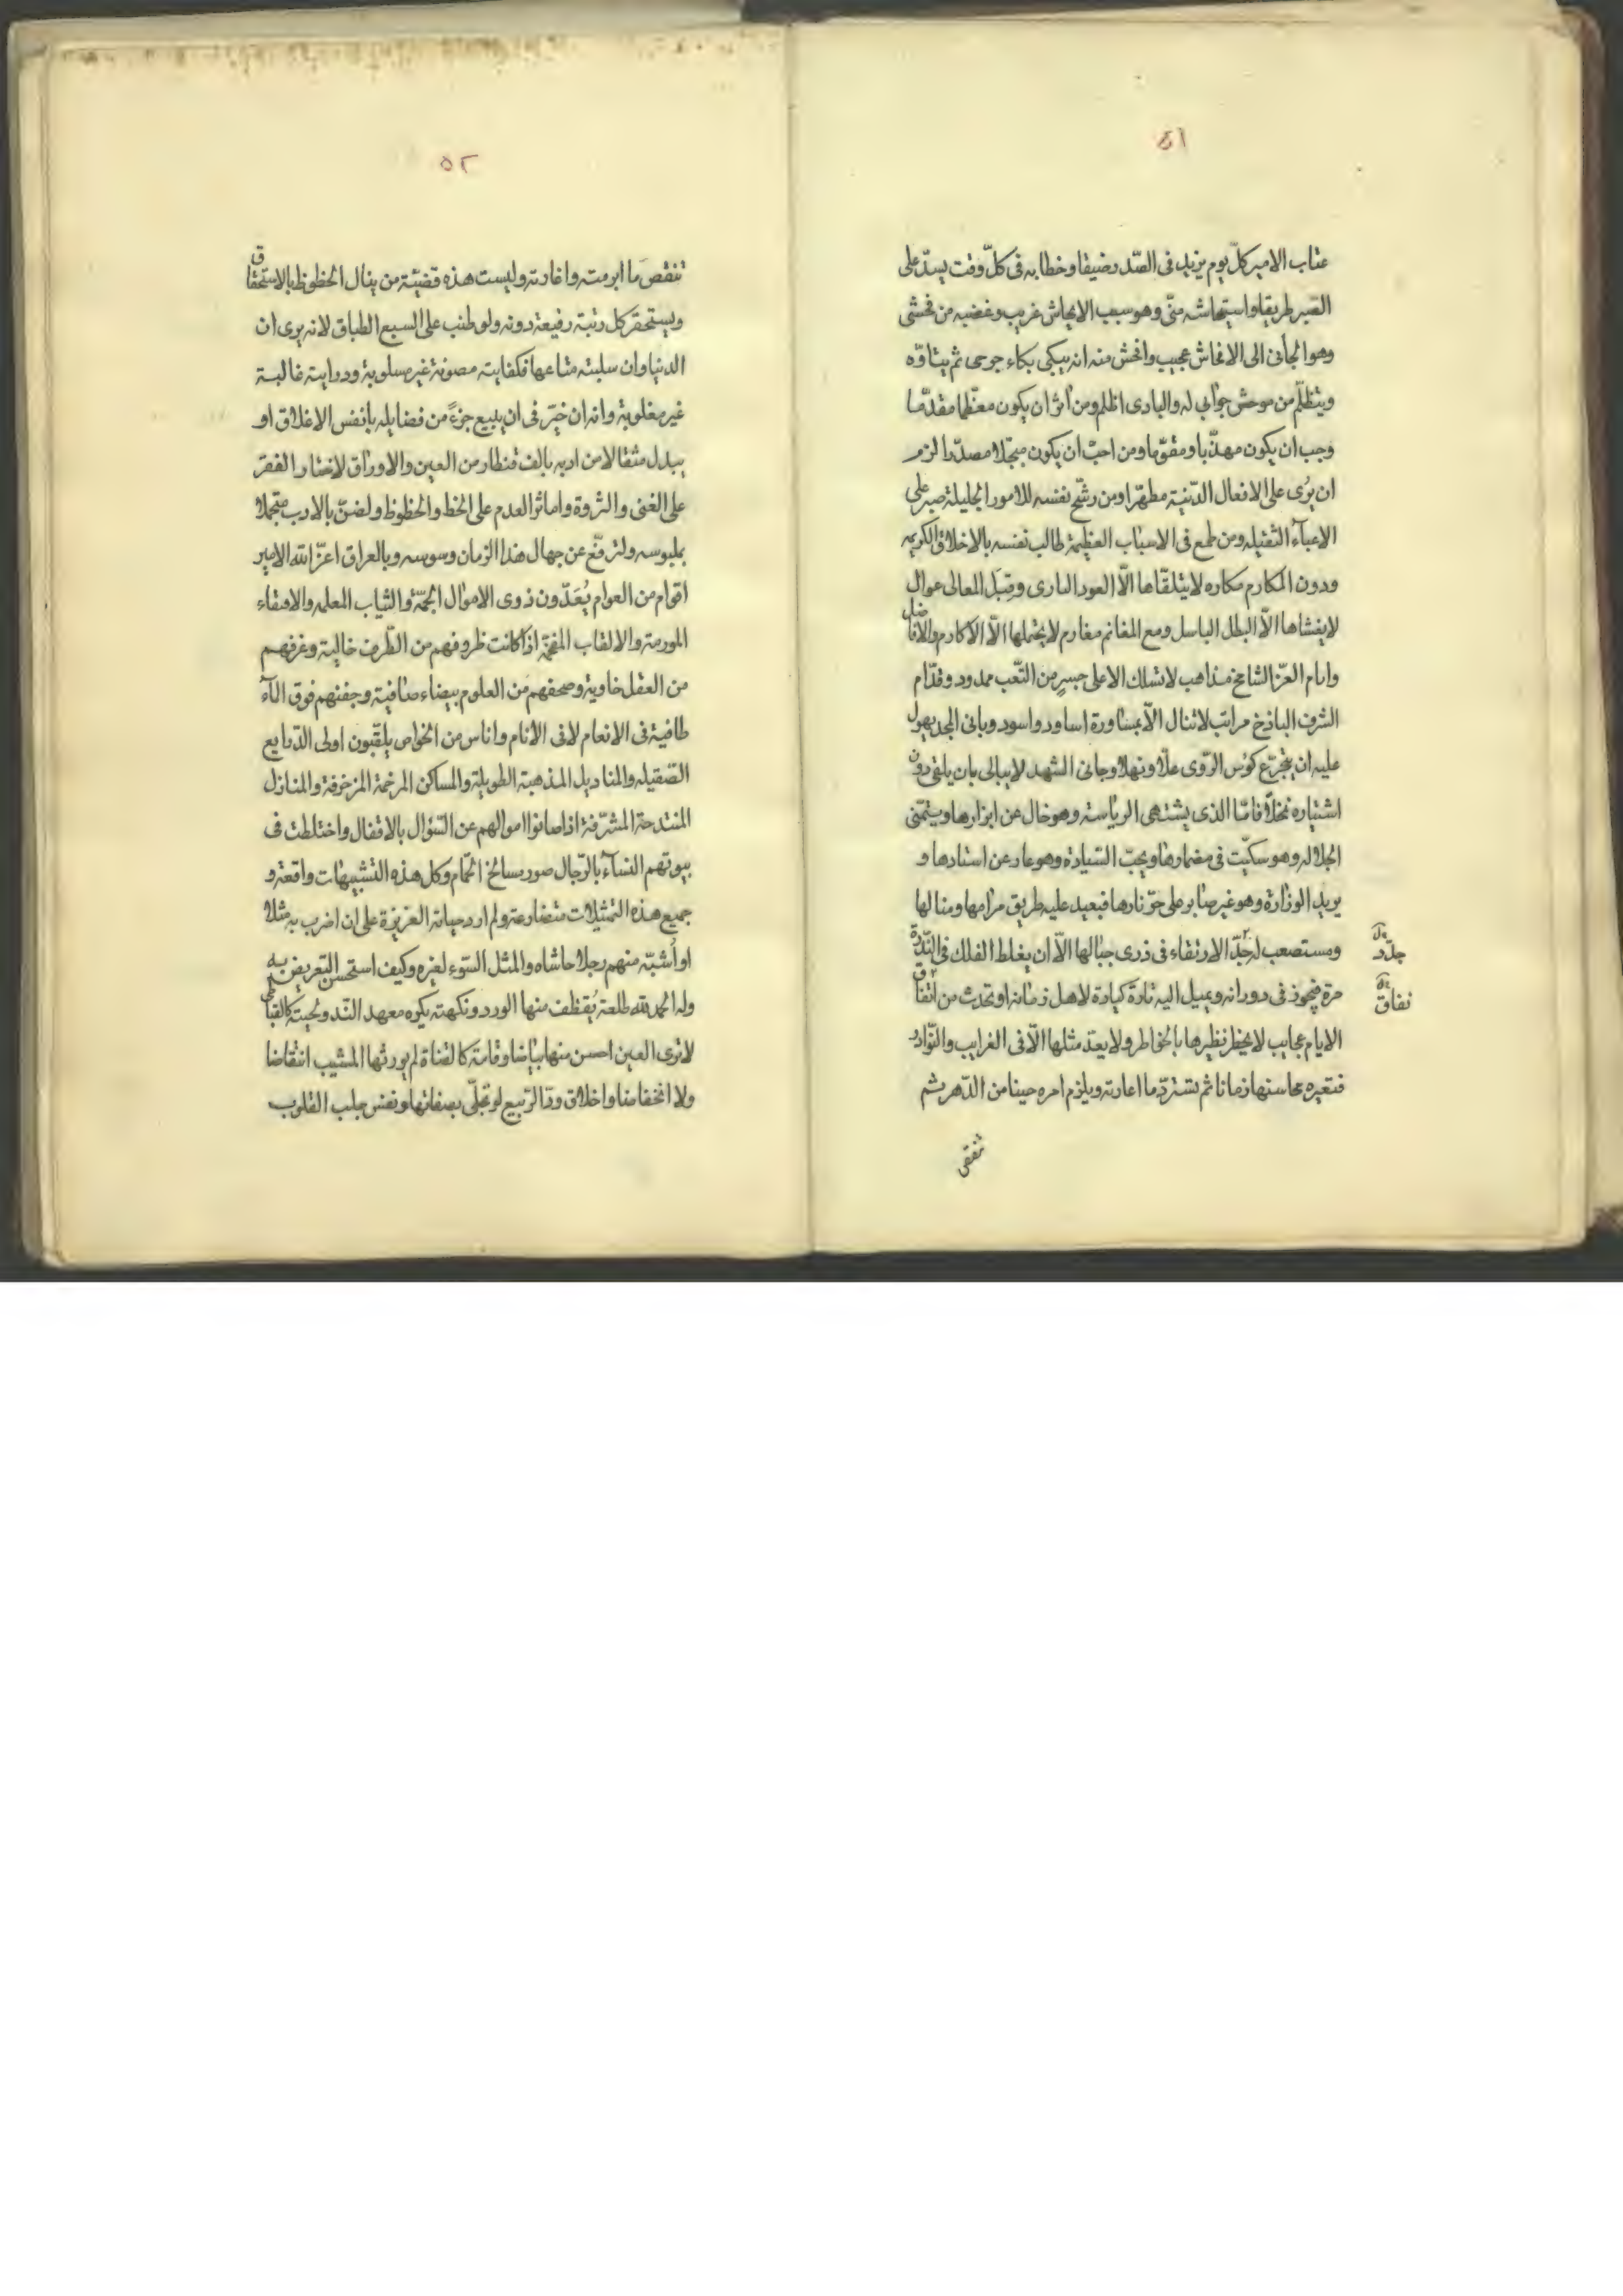 ٥١
عتاب الامير كلّ يوم يزيد فى الصّدر ضيقا وخطابه فى كلّ وقت يسدّ على
الصبر طريقا واستيحاشه منّى وهو سبب الايحاش غريب وغضبه من فحشى
وهو الجأنى الى الافحاش عجيب وافحش منه انه يبكى بكاء جرحى ثم يتاوّه
ويتظلّم من موحش جوابى له والبادى اظلم ومن آثر ان يكون معظّما مقدّما
وجب ان يكون مهذّبا ومقوّما ومن احبّ ان يكون مبجّلا مصدّرا لزم
ان يرى على الافعال الدّنية مطهّرا ومن رشّح نفسه للامور الجليلة صبر على
الاعبآء الثقيله ومن طمع فى الاسباب العظيمة طالب نفسه بالاخلاق الكريمه
ودون المكارم مكاره لا يتلقّاها الّا العود البارى وقِبَل المعالى عوال
لا يغشاها الّا البطل الباسل ومع المغانم مغارم لا يحتملها الّا الاكارم والافاضل
وامام العزّ الشامخ مذاهب لا تسلك الا على جسرٍ من التّعب ممدود وقدّام
الشرف الباذخ مراتب لا تنال الّا بمساورة اساود واسود وبانى المجد يهول
عليه ان يتجرّع كؤس الرّدى علّا ونهلا وجانى الشهد لا يبالى بان يلقى دون
اشتياره نحلا فامّا الذى يشتهى الرياسة وهو خال عن ابزارها ويتمنّى
الجلاله وهو سكّيت فى مضمارها ويحبّ السّيادة وهو عار عن استارها و
يريد الوزارة وهو غير صابر على حرّ نارها فبعيد عليه طريق مرامها ومنالها
ومستصعب لجدّ الارتقاء فى ذرى جبالها الّا ان يغلط الفلك فى النّدرة
جدّه
مرة فيجوز فى دورانه ويميل اليه تارة كيادة لاهل زمانه او تحدث من اتفاق
نفاق
الايام عجايب لا يخطر نظيرها بالخاطر ولا يعدّ مثلها الّا فى الغرايب والنّوادر
فتعيره محاسنها زمانا ثم تستردّ ما اعارته ويلزم امره حينا من الدّهر ثم
٥٢
تنقض ما ابرمته واغارته وليست هذه قضيّة من ينال الحظوظ بالاستحقاق
ويستحقر كل رتبة رفيعة دونه ولو طنب على السبع الطباق لانه يرى ان
الدنيا وان سلبته متاعها فكفايته مصونة غير مسلوبة ودرايته غالبة
غير مغلوبة وانه ان خيّر فى ان يبيع جزءً من فضايله بانفس الاعلاق او
يبدل مثقالا من ادبه بالف قنطار من العين والاوراق لاختار الفقر
على الغنى والثروة والعدم على الخط والحظوظ ولضنّ بالادب متجملا
بملبوسه ولترفّع عن جهال هذا الزمان وسوسه وبالعراق اعزّ الله الامير
اقوام من العوام يُعَدّون ذوى الاموال الجمّة والثياب المعلمه والاقفاء
المورمة والالقاب المفخمّة اذا كانت ظروفهم من الظّرف خالية وغرفهم
من العقل خاوية وصحفهم من العلوم بيضاء صافية وجفنهم فوق المآء
طافية فى الانعام لا فى الأنام واناس من الخواص يلقّبون اولى الدّرايع
الصّقيله والمناديل المذهبة الطويلة والمساكن المرخمة المزخرفة والمنازل
المنتدحة المشرّفة اذا صانوا اموالهم عن السّؤال بالاقفال واختلطت فى
بيوتهم النسآء بالرّجال صور مسالخ الحمّام وكل هذه التّشبيهات واقعة و
جميع هذه التمثيلات متضارعة ولم ارد حياته العزيزة على ان اضرب به مثلا
او أُشبّه منهم رجلا حاشاه والمثل السّوء لغيره وكيف استحسن التعريض به
وله الحمد لله طلعة يُقتطف منها الورد ونكهته يكره معهد النّد ولحيته كالقباطى
لا ترى العين احسن منها بياضا وقامة كالقناة لم يورثها المشيب انتقاضا
ولا انخفاضا واخلاق ودّ الرّبيع لو تحلّى بصفاتها ونفس جلب القلوب